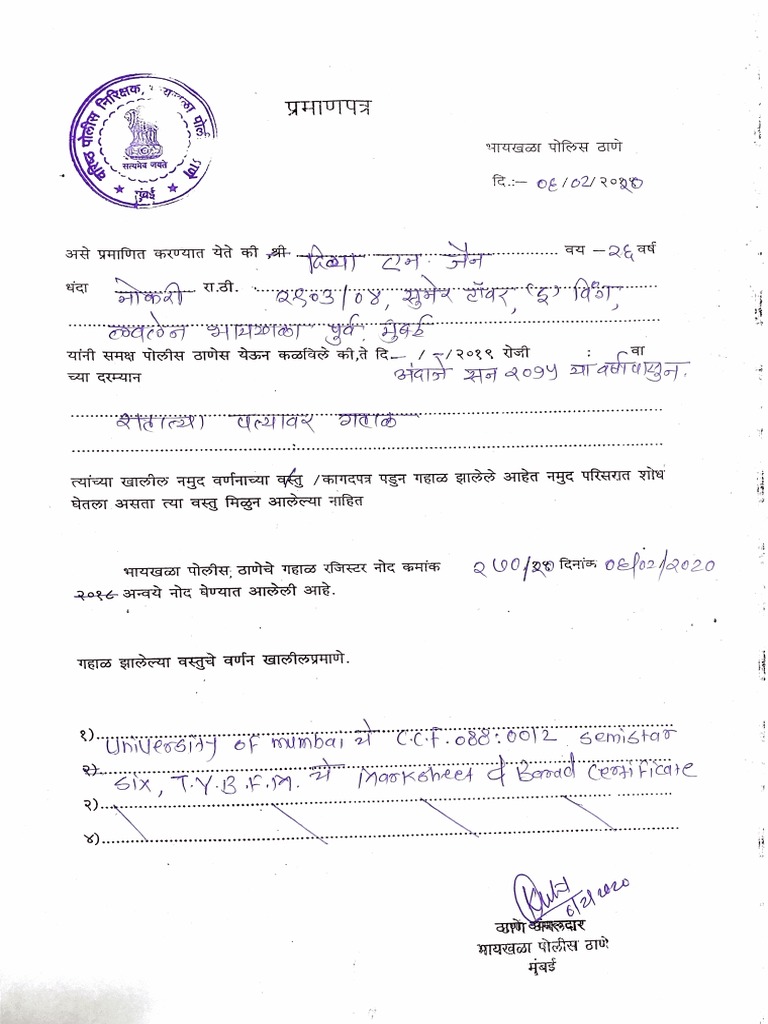 वरिष्ठ पोलीस निरिक्षक, पोलीस ठाणे
सत्यमेव जयते
मुंबई
प्रमाणपत्र
भायखळा पोलिस ठाणे
दि.:– ०६/०२/२०२०
असे प्रमाणित करण्यात येते की श्री दिव्या एन. जैन वय –२६ वर्ष
धंदा नोकरी रा.ठी. २९०३/०४, सुमेर टॉवर, 'ई' विंग,
लवलेन भायखळा पुर्व. मुंबई
यांनी समक्ष पोलीस ठाणेस येऊन कळविले की,ते दि –/–/–२०१९ रोजी : वा
च्या दरम्यान अंदाजे सन २०१५ च्या वर्षापासुन.
रहात्या पत्यावर गहाळ
त्यांच्या खालील नमुद वर्णनाच्या वस्तु /कागदपत्र पडुन गहाळ झालेले आहेत नमुद परिसरात शोध
घेतला असता त्या वस्तु मिळुन आलेल्या नाहित
भायखळा पोलीस ठाणेचे गहाळ रजिस्टर नोद कमांक २७०/२० दिनांक ०६/०२/२०२०
२०१८ अन्वये नोद घेण्यात आलेली आहे.
गहाळ झालेल्या वस्तुचे वर्णन खालीलप्रमाणे.
१) University of mumbai चे C.C.F.088:0012 semistar
२) six, T.Y.B.F.M. चे Marksheet & Barad Certificate
३)
४)
6/2/2020
ठाणे अंमलदार
भायखळा पोलीस ठाणे
मुंबई